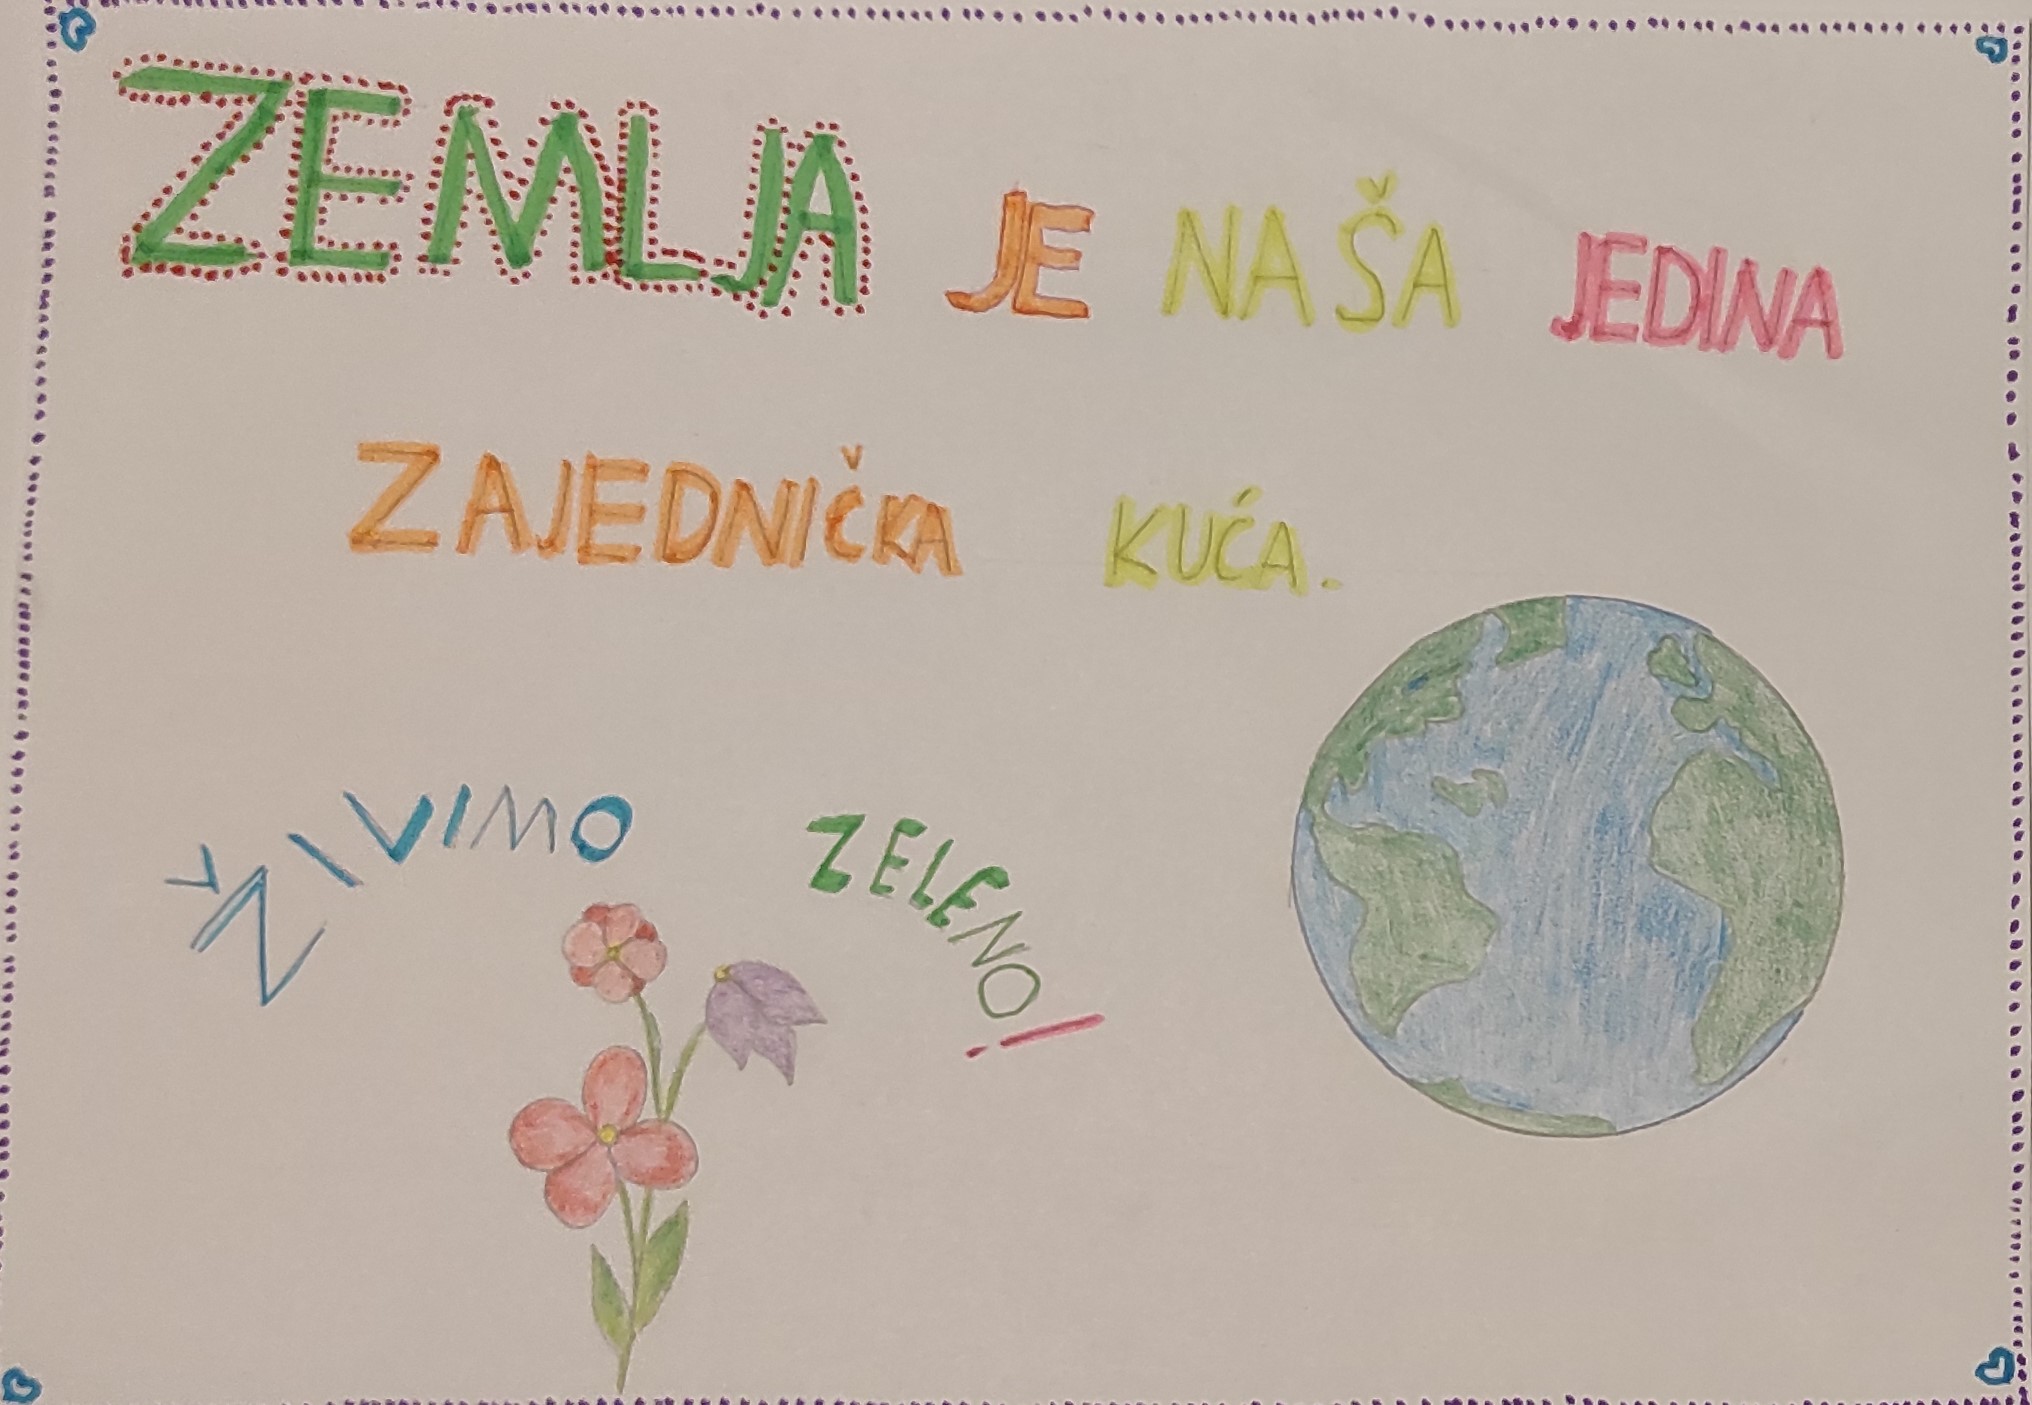 ZEMLJA JE NAŠA JEDINA
ZAJEDNIČKA KUĆA.
ŽIVIMO ZELENO!